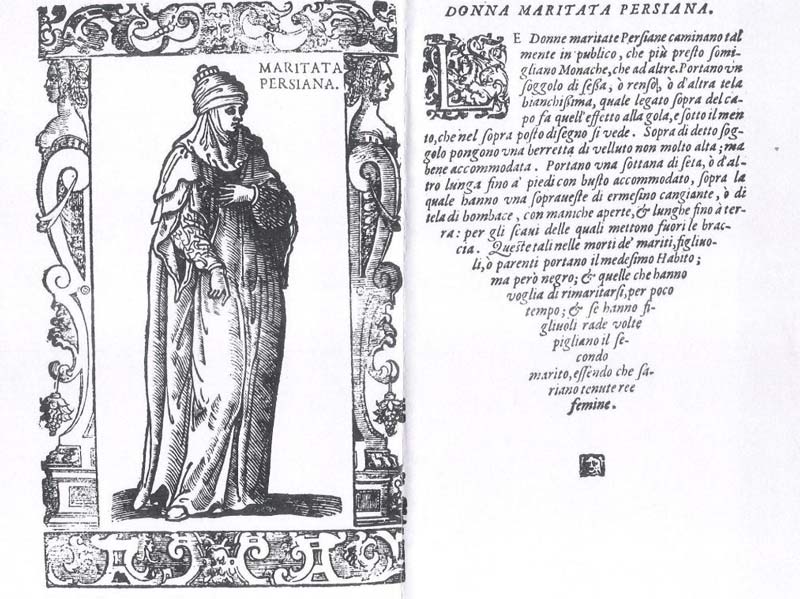 MARITATA
PERSIANA.
DONNA MARITATA PERSIANA.
LE Donne maritate Persiane caminano tal
mente in publico, che più presto somi-
gliano Monache, che ad altre. Portano vn
soggolo di seßa, ò renso, ò d'altra tela
bianchißima, quale legato sopra del ca-
po fa quell'effetto alla gola, e sotto il men
to, che nel sopra posto disegno si vede. Sopra di detto sog-
golo pongono vna berretta di velluto non molto alta; ma
bene accommodata. Portano vna sottana di seta, ò d'al-
tro lunga fino a' piedi con busto accommodato, sopra la
quale hanno vna sopraueste di ermesino cangiante, ò di
tela di bombace, con maniche aperte, & lunghe fino à ter-
ra: per gli scaui delle quali mettono fuori le brac-
cia. Queste tali nelle morti de' mariti, figliuo-
li, ò parenti portano il medesimo Habito;
ma però negro; & quelle che hanno
voglia di rimaritarsi, per poco
tempo; & se hanno fi-
gliuoli rade volte
pigliano il se-
condo
marito, essendo che sa-
riano tenute ree
femine.